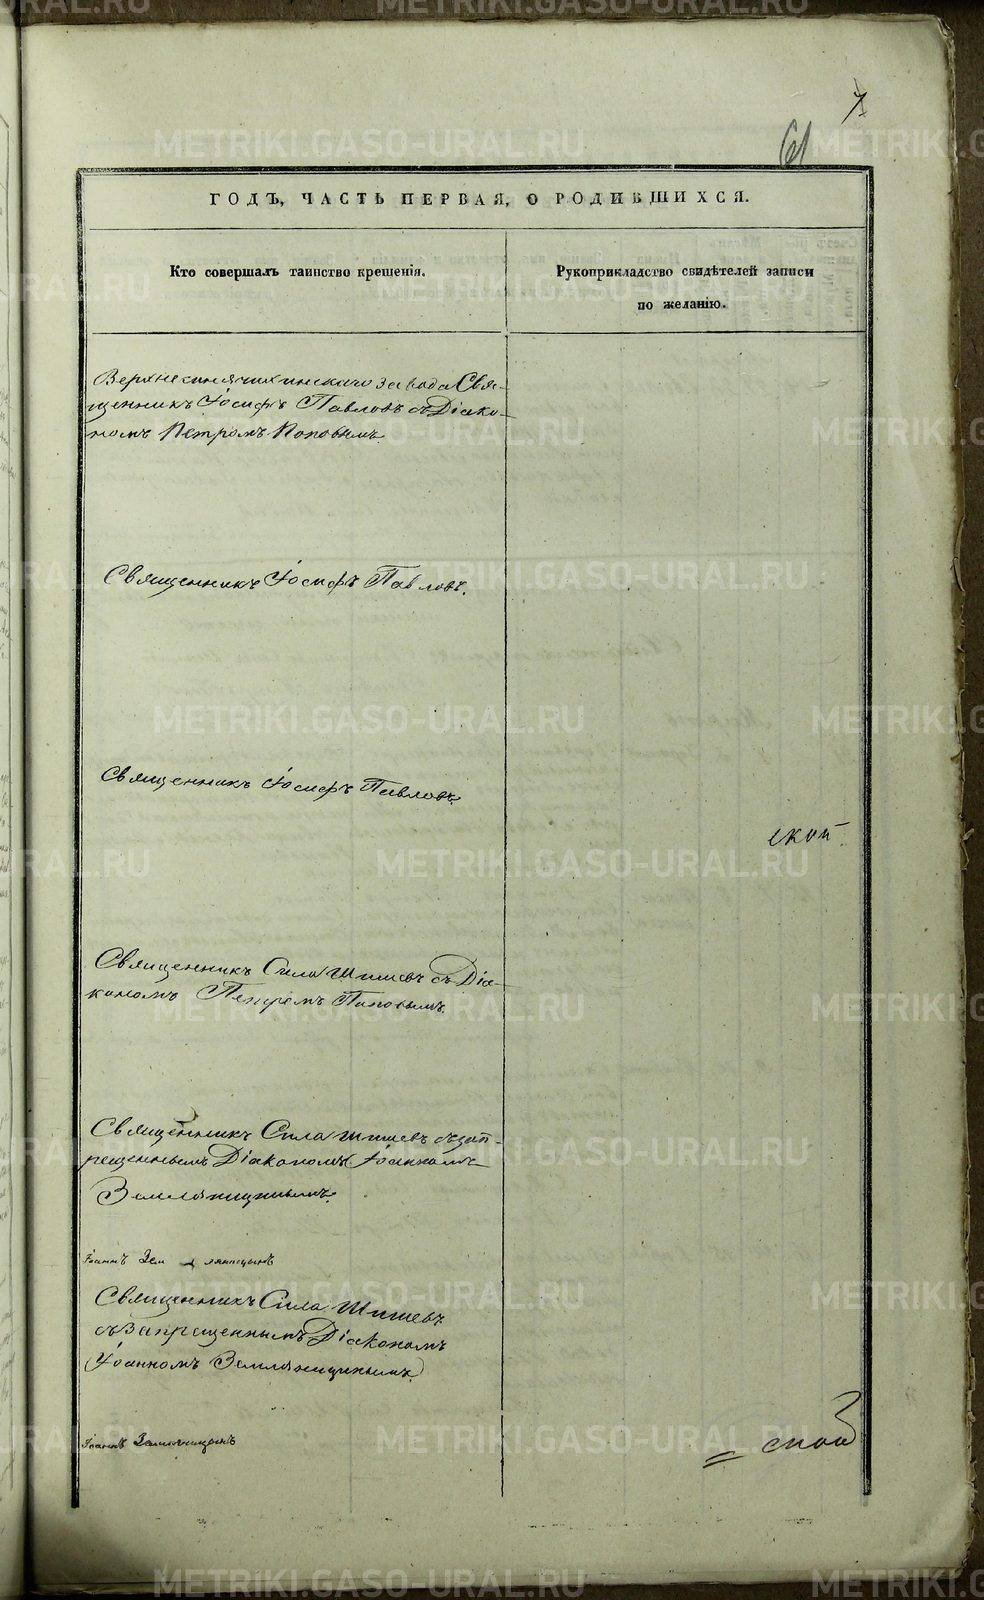 7
61
ГОДЪ, ЧАСТЬ ПЕРВАЯ, О РОДИВШИХСЯ.
Кто совершалъ таинство крещенія.
Рукоприкладство свидѣтелей записи
по желанію.
Верхнесинячихинскаго завода Свя-
щенникъ Іосифъ Павловъ съ Діако-
номъ Петромъ Поповымъ.
Священникъ Іосифъ Павловъ.
Священникъ Іосифъ Павловъ.
ской
Священникъ Сила Шишевъ съ Діа-
кономъ Петромъ Поповымъ.
Священникъ Сила Шишевъ съ зап-
рещеннымъ Діакономъ Іоанномъ
Земляницынымъ.
Іоаннъ Земляницынъ
Священникъ Сила Шишевъ
съ Запрещеннымъ Діакономъ
Іоанномъ Земляницынымъ.
Іоаннъ Земляницынъ
METRIKI.GASO-URAL.RU